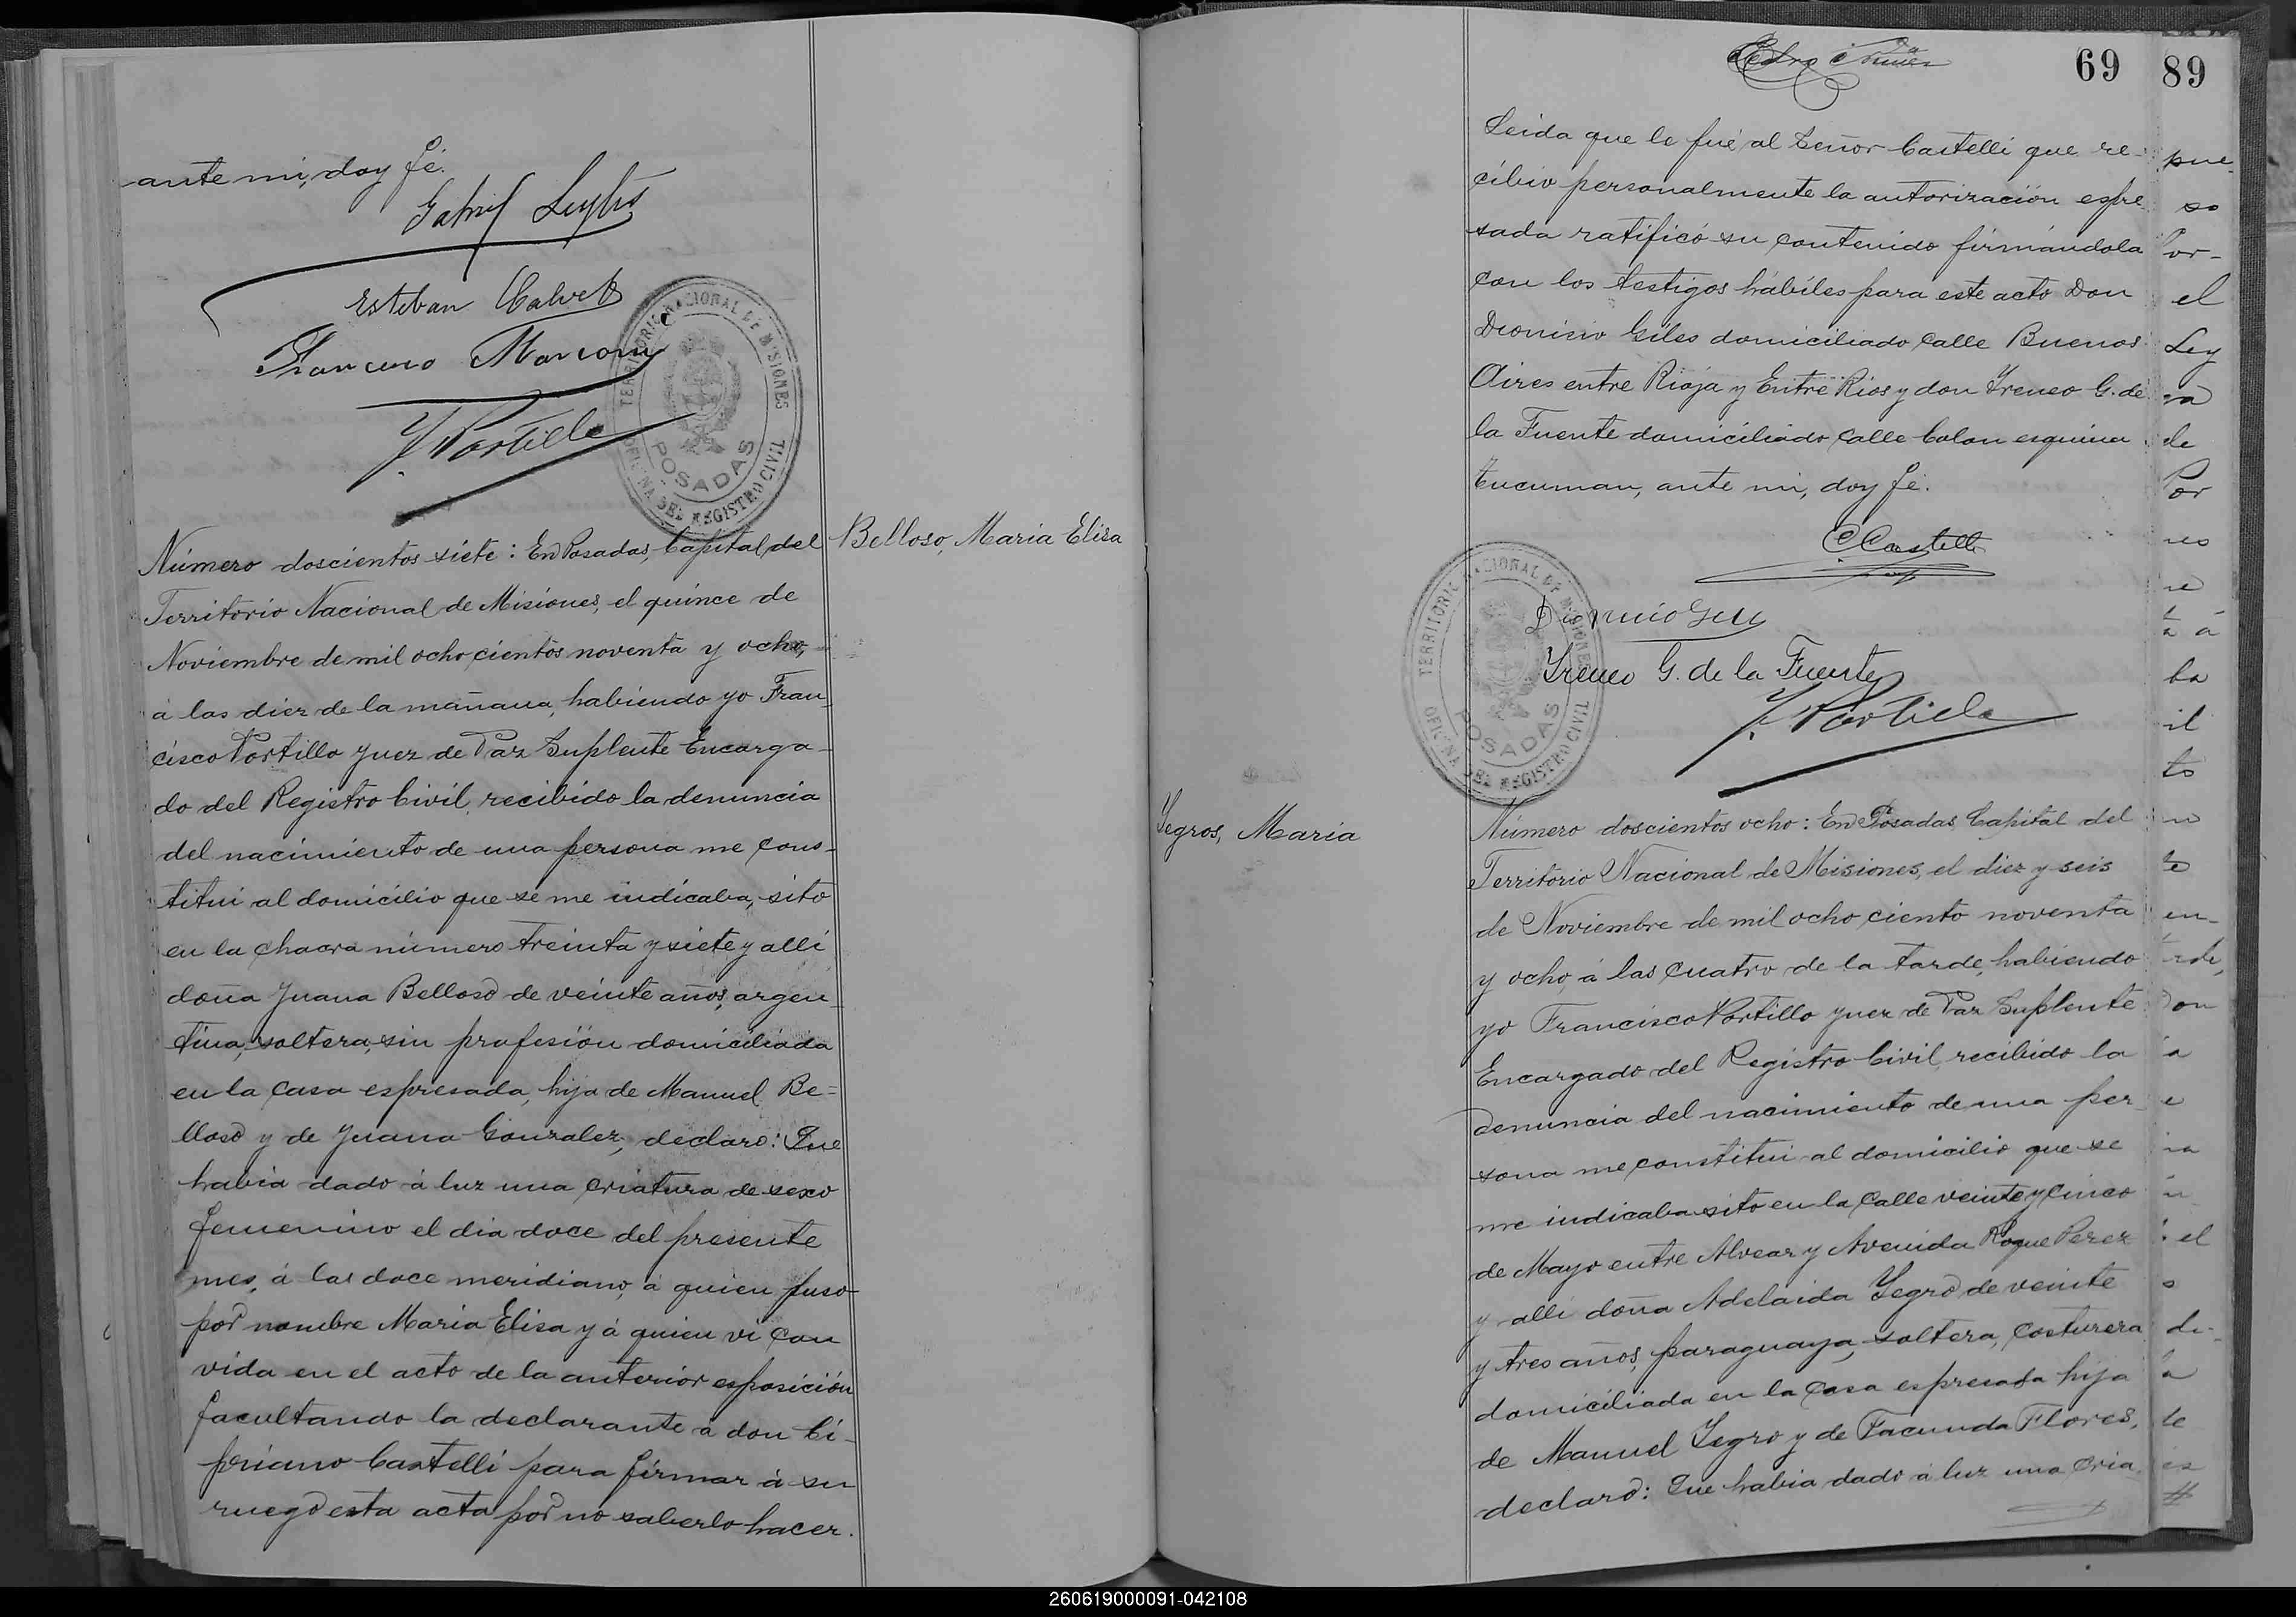 ante mi, doy fé.
Esteban Calvet
Francisco Marconi
F. Portillo
TERRITORIO NACIONAL DE MISIONES
POSADAS
OFICINA DEL REGISTRO CIVIL
Belloso, Maria Elisa
Número doscientos siete: En Posadas, Capital del
Territorio Nacional de Misiones, el quince de
Noviembre de mil ocho cientos noventa y ocho,
á las diez de la mañana, habiendo yo Fran
cisco Portillo Juez de Paz Suplente Encarga-
do del Registro Civil, recibido la denuncia
del nacimiento de una persona me cons-
titui al domicilio que se me indicaba, sito
en la chacra número treinta y siete y alli
doña Juana Belloso de veinte años, argen
tina, soltera, sin profesión domiciliada
en la casa espresada, hija de Manuel Be=
lloso y de Juana Gonzalez, declaro: Que
habia dado á luz una criatura de sexo
femenino el dia doce del presente
mes, á las doce meridiano, á quien puso
por nombre Maria Elisa y á quien vi con
vida en el acto de la anterior esposición
facultando la declarante á don Ci-
priano Castelli para firmar á su
ruego esta acta por no saberlo hacer.
69
Leida que le fué al Señor Castelli que re-
cibió personalmente la autorización espre
sada ratificó su contenido firmándola
con los testigos hábiles para este acto Don
Dionisio Giles domiciliado calle Buenos
Aires entre Rioja y Entre Rios y don Yreneo G. de
la Fuente domiciliado calle Colon esquina
Tucuman, ante mi, doy fé.
C Castelli
Yreneo G. de la Fuente
F. Portillo
TERRITORIO NACIONAL DE MISIONES
POSADAS
OFICINA DEL REGISTRO CIVIL
Yegros, Maria
Número doscientos ocho: En Posadas, Capital del
Territorio Nacional de Misiones, el diez y seis
de Noviembre de mil ocho ciento noventa
y ocho, á las cuatro de la tarde, habiendo
yo Francisco Portillo Juez de Paz Suplente
Encargado del Registro Civil, recibido la
denuncia del nacimiento de una per
sona me constitui al domicilio que se
me indicaba sito en la calle veinte y cinco
de Mayo entre Alvear y Avenida Roque Perez
y alli doña Adelaida Yegro de veinte
y tres años, paraguaya, soltera, costurera
domiciliada en la casa espresada hija
de Manuel Yegro y de Facunda Flores,
declaro: Que habia dado á luz una cria
89
pue
so
or-
el
Ley
de
Por
260619000091-042108